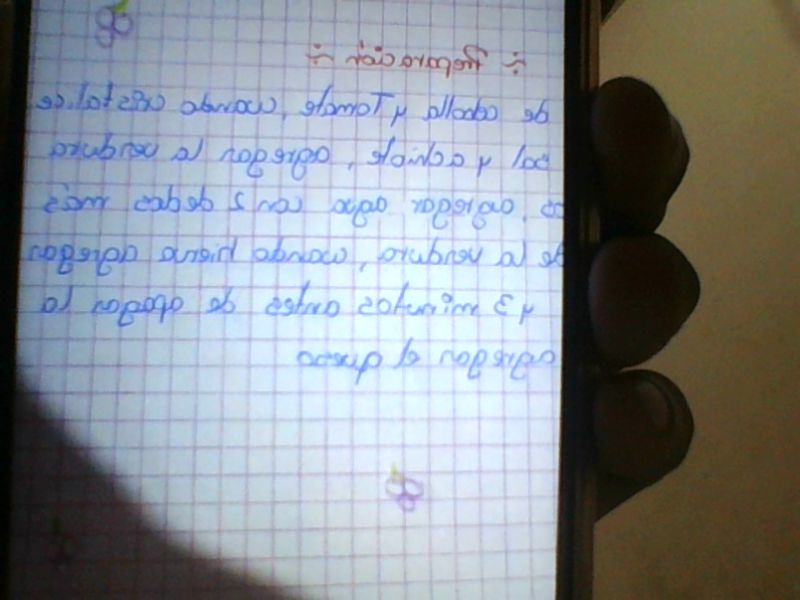 ÷ Preparación ÷
de cebolla y Tomate, cuando cristalice
sal y aceite, agregan la verdura
agregar agua con 2 dedos más
de la verdura, cuando hierva agregan
y 3 minutos antes de apagar la
agregan el queso